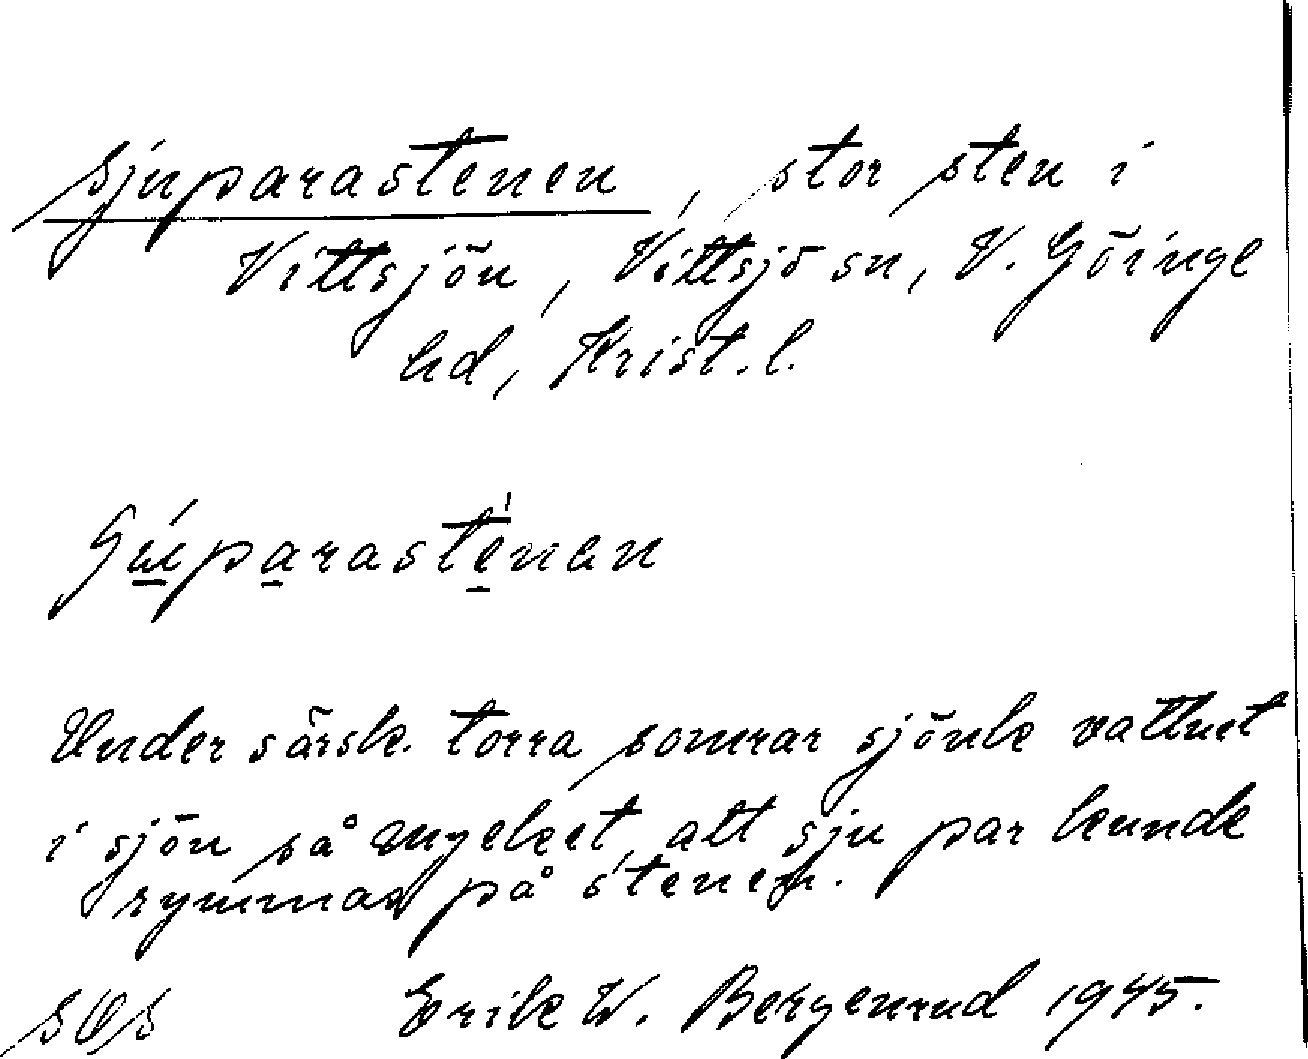 Sjuparastenen, stor sten i
Vittsjön, Vittsjö sn, V. Göinge
hd, Krist. l.
Sjúparastenen
Under särsk. torra somrar sjönk vattnet
i sjön så mycket, att sju par kunde
rymmas på stenen.
Erik W. Bergenrud 1945.